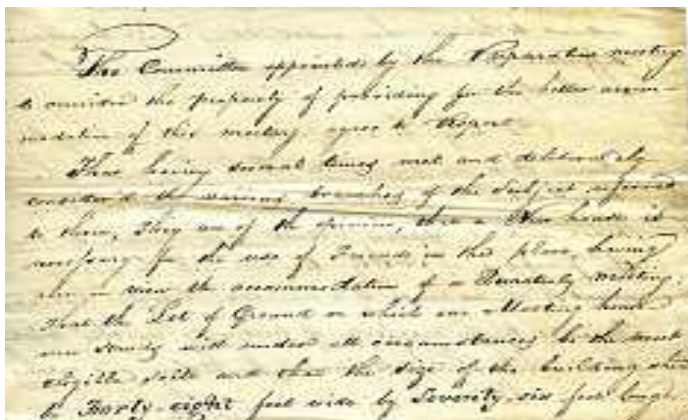 The Committee appointed by the Preparative meeting
to consider the propriety of providing for the better accom-
modation of this meeting agree to Report
That having several times met and deliberately
considered the various branches of the Subject referred
to them, they are of the opinion, that a New house is
necessary for the use of Friends in this place, having
also in view the accommodation of a Quarterly meeting,
that the Lot of Ground on which our Meeting house
now stands will under all circumstances be the most
eligible scite and that the size of the building
be Forty-eight feet wide by Seventy-six feet long.